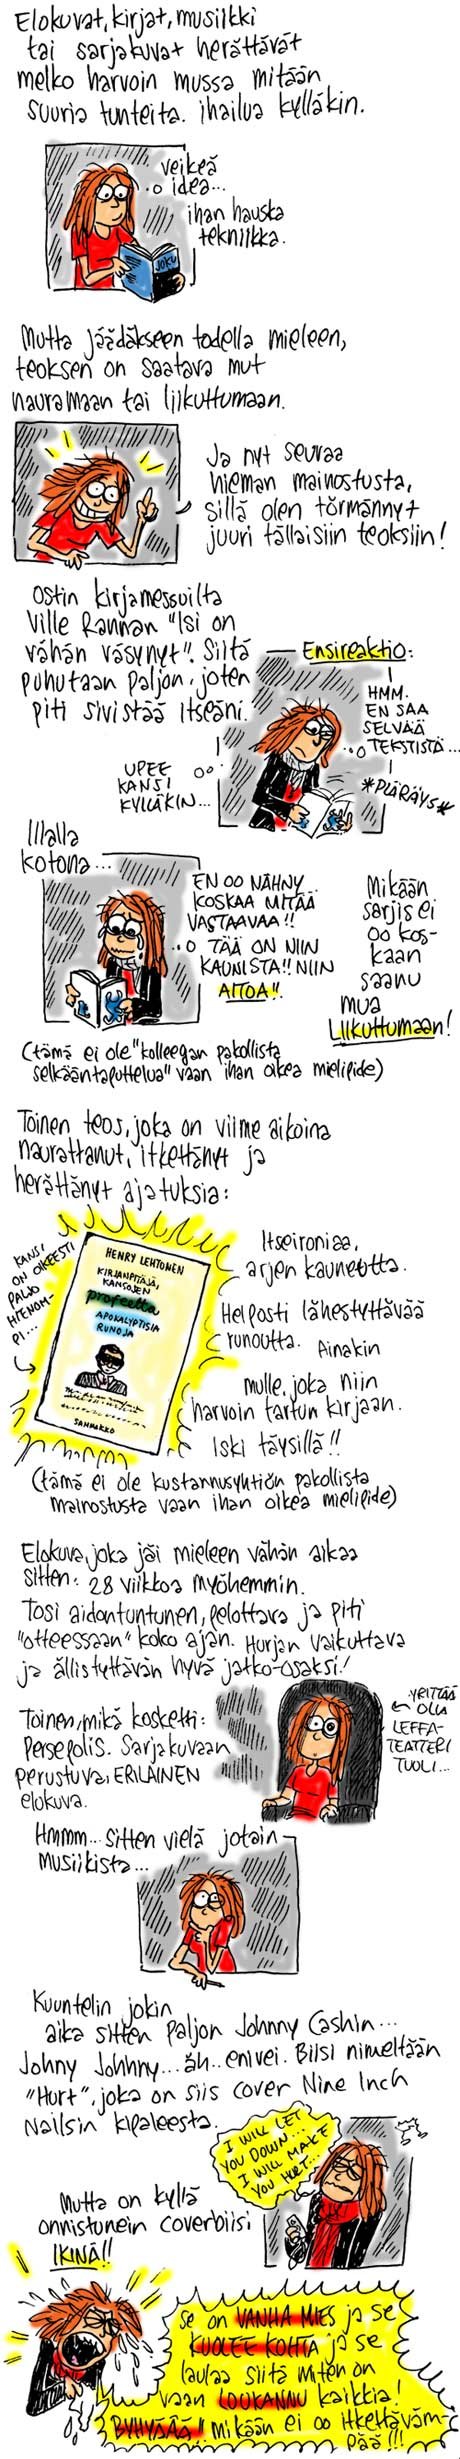 Elokuvat, kirjat, musiikki
tai sarjakuvat herättävät
melko harvoin mussa mitään
suuria tunteita. ihailua kylläkin.
veikeä
idea...
ihan hauska
tekniikka.
JOKU
Mutta jäädäkseen todella mieleen,
teoksen on saatava mut
nauramaan tai liikuttumaan.
Ja nyt seuraa
hieman mainostusta,
sillä olen törmännyt
juuri tällaisiin teoksiin!
Ostin kirjamessuilta
Ville Rannan "Isi on
vähän väsynyt". Siitä
puhutaan paljon, joten
piti sivistää itseäni.
Ensireaktio:
HMM.
EN SAA
SELVÄÄ
TEKSTISTÄ...
UPEE
KANSI
KYLLÄKIN...
*PLÄRÄYS*
Illalla
kotona...
EN OO NÄHNY
KOSKAA MITÄÄ
VASTAAVAA!!
TÄÄ ON NIIN
KAUNISTA!! NIIN
AITOA!!
Mikään
sarjis ei
oo kos-
kaan
saanu
mua
Liikuttumaan!
(tämä ei ole "kolleegan pakollista
selkääntaputtelua" vaan ihan oikea mielipide)
Toinen teos, joka on viime aikoina
naurattanut, itkettänyt ja
herättänyt ajatuksia:
KANSI
ON OIKEESTI
PALJO
HIENOM-
PI...
HENRY LEHTONEN
KIRJANPITÄJÄ,
KANSOJEN
profeetta
APOKALYPTISIA
RUNOJA
SAMMAKKO
Itseironiaa,
arjen kauneutta.
Helposti lähestyttävää
runoutta. Ainakin
mulle, joka niin
harvoin tartun kirjaan.
Iski täysillä!!
(tämä ei ole kustannusyhtiön pakollista
mainostusta vaan ihan oikea mielipide)
Elokuva, joka jäi mieleen vähän aikaa
sitten: 28 viikkoa myöhemmin.
Tosi aidontuntunen, pelottava ja piti
"otteessaan" koko ajan. Hurjan vaikuttava
ja ällistyttävän hyvä jatko-osaksi!
Toinen, mikä kosketti:
Persepolis. Sarjakuvaan
perustuva, ERILAINEN
elokuva.
YRITTÄÄ
OLLA
LEFFA-
TEATTERI
TUOLI...
Hmmm... Sitten vielä jotain
musiikista...
Kuuntelin jokin
aika sitten paljon Johnny Cashin...
Johny Johhny...äh..enivei. Biisi nimeltään
"Hurt", joka on siis cover Nine Inch
Nailsin kipaleesta.
I WILL LET
YOU DOWN...
I WILL MAKE
YOU HURT...
Mutta on kyllä
onnistunein coverbiisi
IKINÄ!!
Se on VANHA MIES ja se
KUOLEE KOHTA ja se
laulaa siitä miten on
vaan LOUKANNU kaikkia!
BYHYÄÄÄ!! mikään ei oo itkettäväm-
pää!!!